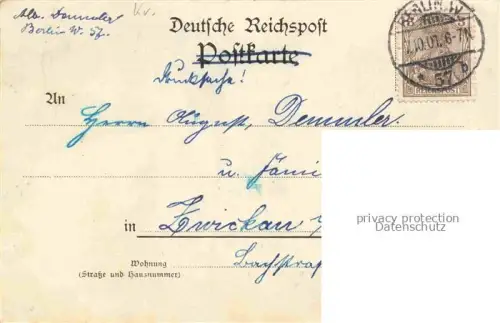 Alb. Demmler
Berlin W. 57.
Kv.
Deutsche Reichspost
Postkarte
Drucksache!
BERLIN W.
10.01. 6-7N.
57 b
REICHSPOST
An
Herrn August Demmler.
u. Fami
in Zwickau
Wohnung
(Straße und Hausnummer)
Bachstraß
privacy protection
Datenschutz